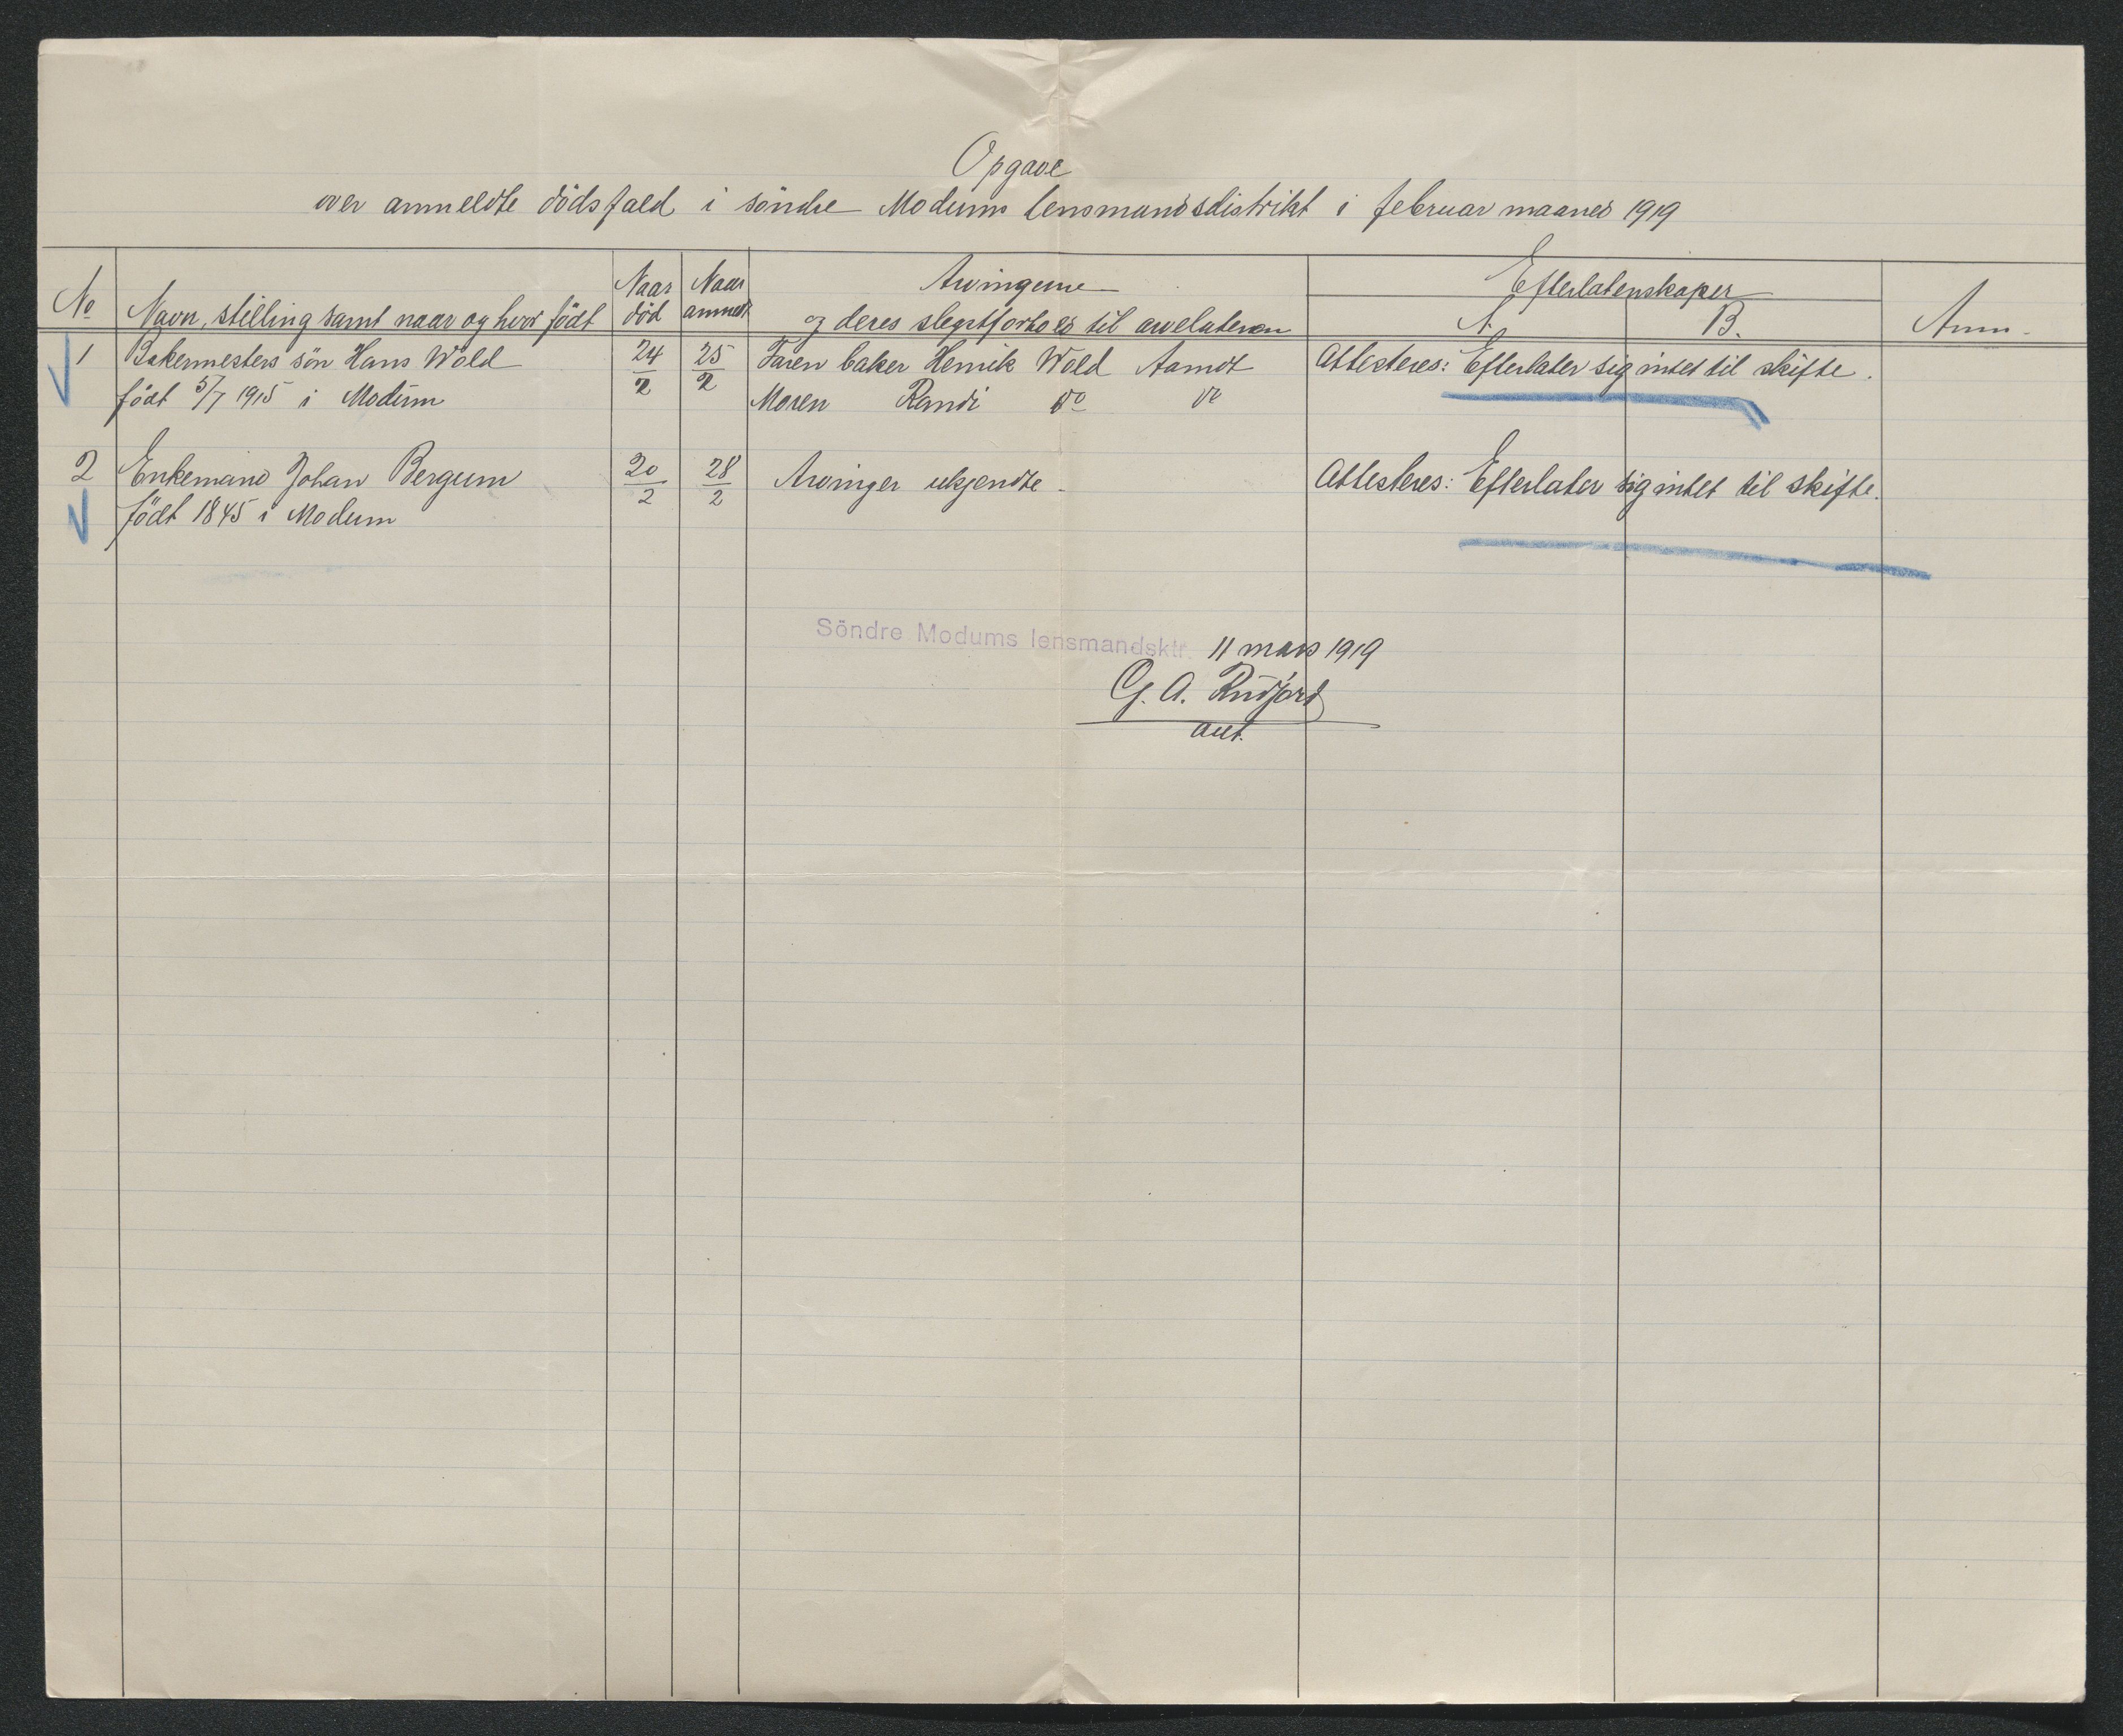 Opgave
over anmeldte dödsfald i söndre Modums lensmandsdistrikt i februar maaned 1919
No
Navn, stilling samt naar og hvor födt
Naar död
Naar anmeldt
Arvingerne
og deres slegtsforhold til arvelateren
Efterlatenskaper
A.
B.
Anm.
1 Bakermesters sön Hans Wold 24/2 25/2 Faren baker Henrik Wold Aamot Attesteres: Efterlater sig intet til skifte.
födt 5/7 1915 i Modum Moren Randi do do
2 Enkemand Johan Bergum 20/2 28/2 Arvinger ukjendte. Attesteres: Efterlater sig intet til skifte.
födt 1845 i Modum
Söndre Modums lensmandsktr. 11 mars 1919
G. A. Rudfjord
aut.